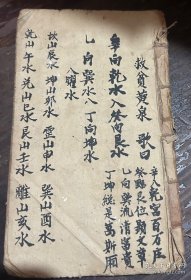 救貧黃泉 歌曰
辛入乾宮百万庄
癸歸艮位發文章
乙向巽流清富貴
丁坤終是萬斯箱
辛向乾水 癸向艮水
乙向巽水 丁向坤水
八曜水
坎山辰水 坤山卯水 震山申水 巽山酉水
乾山午水 兌山巳水 艮山 水 離山亥水